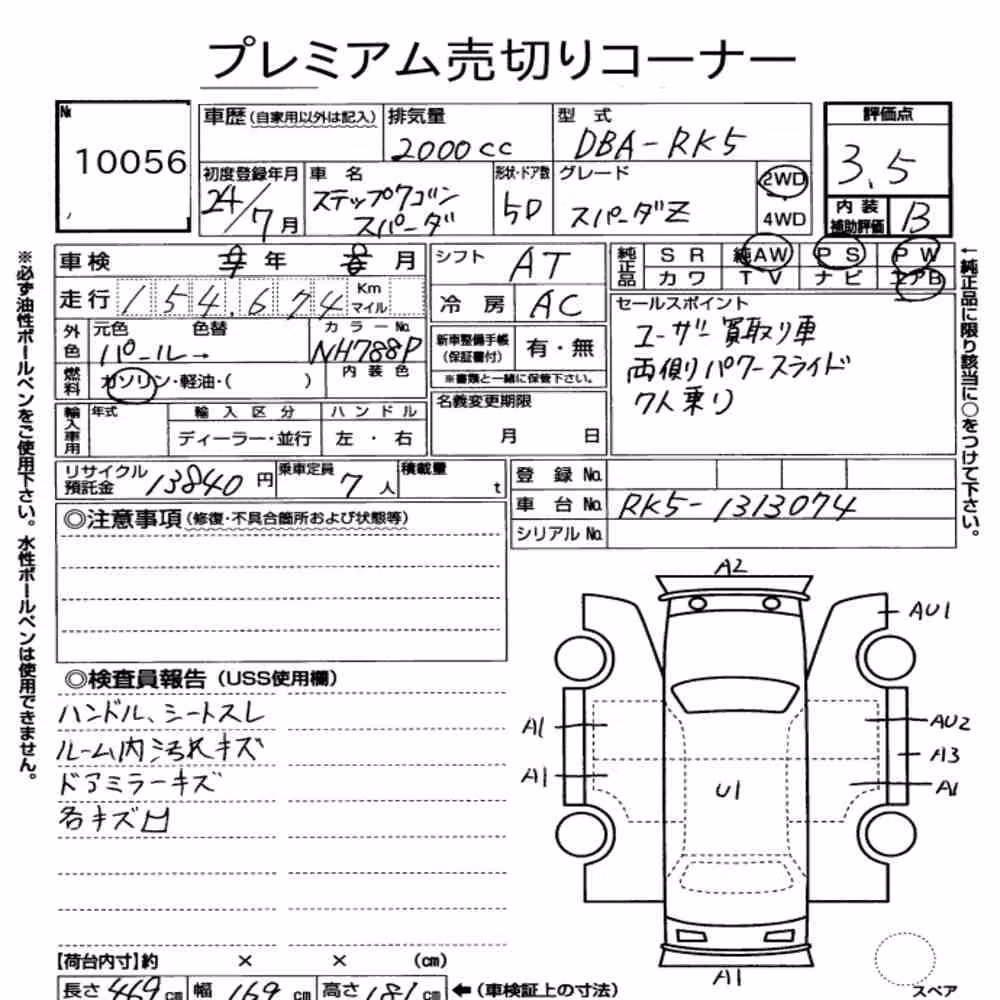 プレミアム売切りコーナー
№ 10056
車歴(自家用以外は記入) 排気量 2000cc 型 式 DBA-RK5 評価点 3.5
初度登録年月 24/7月 車 名 ステップワゴン スパーダ 形状・ドア数 5D グレード スパーダZ 2WD 4WD 内装補助評価 B
車検 年 月
走行 154,674 Km マイル
外色 元色 パール→ 色替 カラーNo. NH788P
燃料 ガソリン・軽油・( ) 内装色
輸入車用 年式 輸入区分 ディーラー・並行 ハンドル 左・右
シフト AT
冷房 AC
新車整備手帳(保証書付) 有・無
※書類と一緒に保管下さい。
名義変更期限 月 日
純正品 SR 純AW PS PW
カワ TV ナビ エアB
セールスポイント
ユーザー買取り車
両側パワースライド
7人乗り
リサイクル預託金 13840円 乗車定員 7人 積載量 t
登録 No.
車台 No. RK5-1313074
シリアル No.
◎注意事項(修復・不具合箇所および状態等)
◎検査員報告(USS使用欄)
ハンドル、シートスレ
ルーム内汚れキズ
ドアミラーキズ
各キズ凹
【荷台内寸】約 × × (cm)
長さ 469cm 幅 169cm 高さ 181cm ←(車検証上の寸法)
A2
AU1
A1
AU2
A3
A1
A1
U1
A1
スペア
※必ず油性ボールペンをご使用下さい。水性ボールペンは使用できません。
←純正品に限り該当に○をつけて下さい。